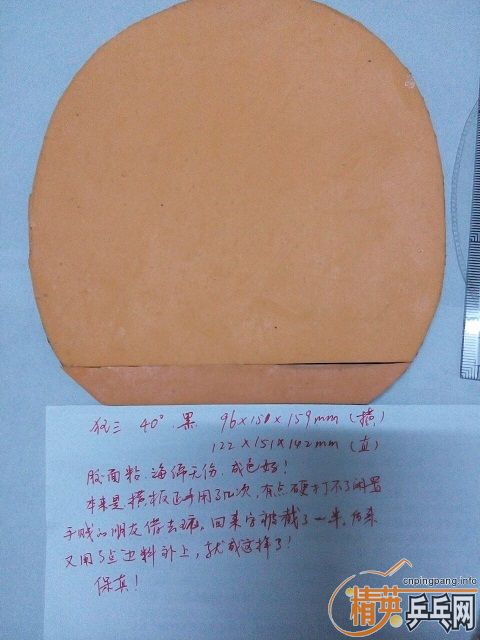 狂三 40° 黑 96×150×159mm (横)
122×151×142mm (直)
胶面粘、海绵无伤、成色好!
本来是横板正手用了几次,有点硬打不了闲置
手贱的朋友借去 回来字被截了一半,后来
又用了点边料补上,就成这样了!
保真!
cnpingpang.info
精英乒乓网